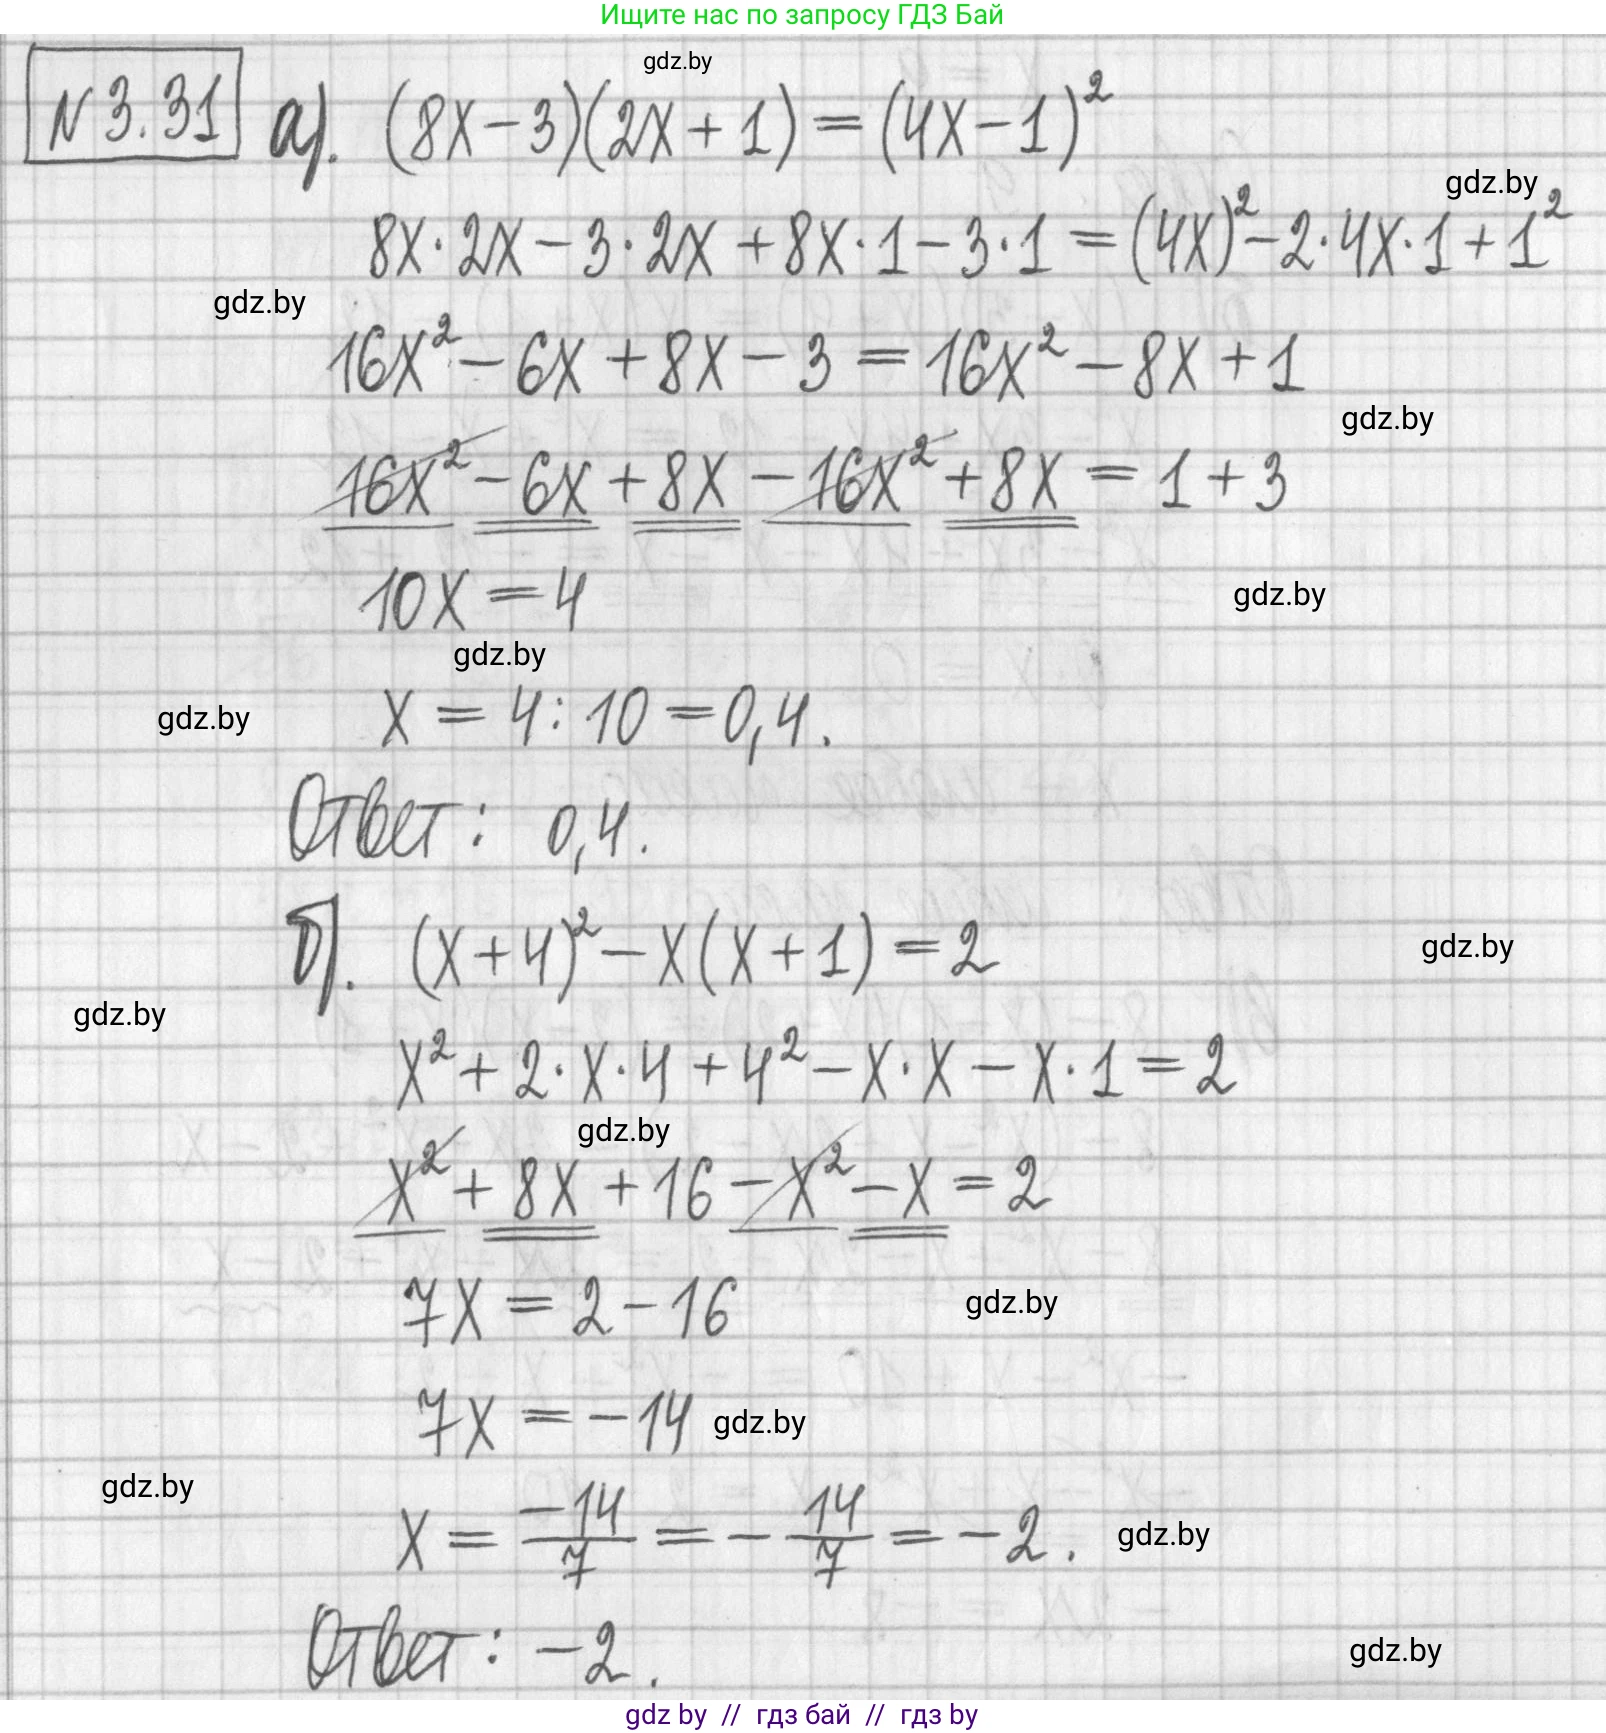 Ищите нас по запросу ГДЗ Бай
gdz.by
N 3.31 а). (8x-3)(2x+1)=(4x-1)²
gdz.by
8x·2x-3·2x+8x·1-3·1=(4x)²-2·4x·1+1²
gdz.by
16x²-6x+8x-3=16x²-8x+1
gdz.by
16x²-6x+8x-16x²+8x=1+3
10x=4
gdz.by
gdz.by
x=4:10=0,4.
gdz.by
Ответ: 0,4.
б). (x+4)²-x(x+1)=2
gdz.by
gdz.by
x²+2·x·4+4²-x·x-x·1=2
gdz.by
x²+8x+16-x²-x=2
7x=2-16
gdz.by
7x=-14
gdz.by
gdz.by
x=\frac{-14}{7}=-\frac{14}{7}=-2.
gdz.by
Ответ: -2.
gdz.by
gdz by // гдз бай // гдз by